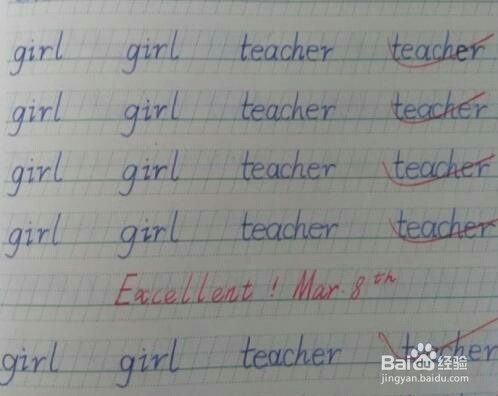 girl girl teacher teacher
girl girl teacher teacher
girl girl teacher teacher
girl girl teacher teacher
Excellent! Mar. 8th
girl girl teacher teacher
Baidu 经验
jingyan.baidu.com